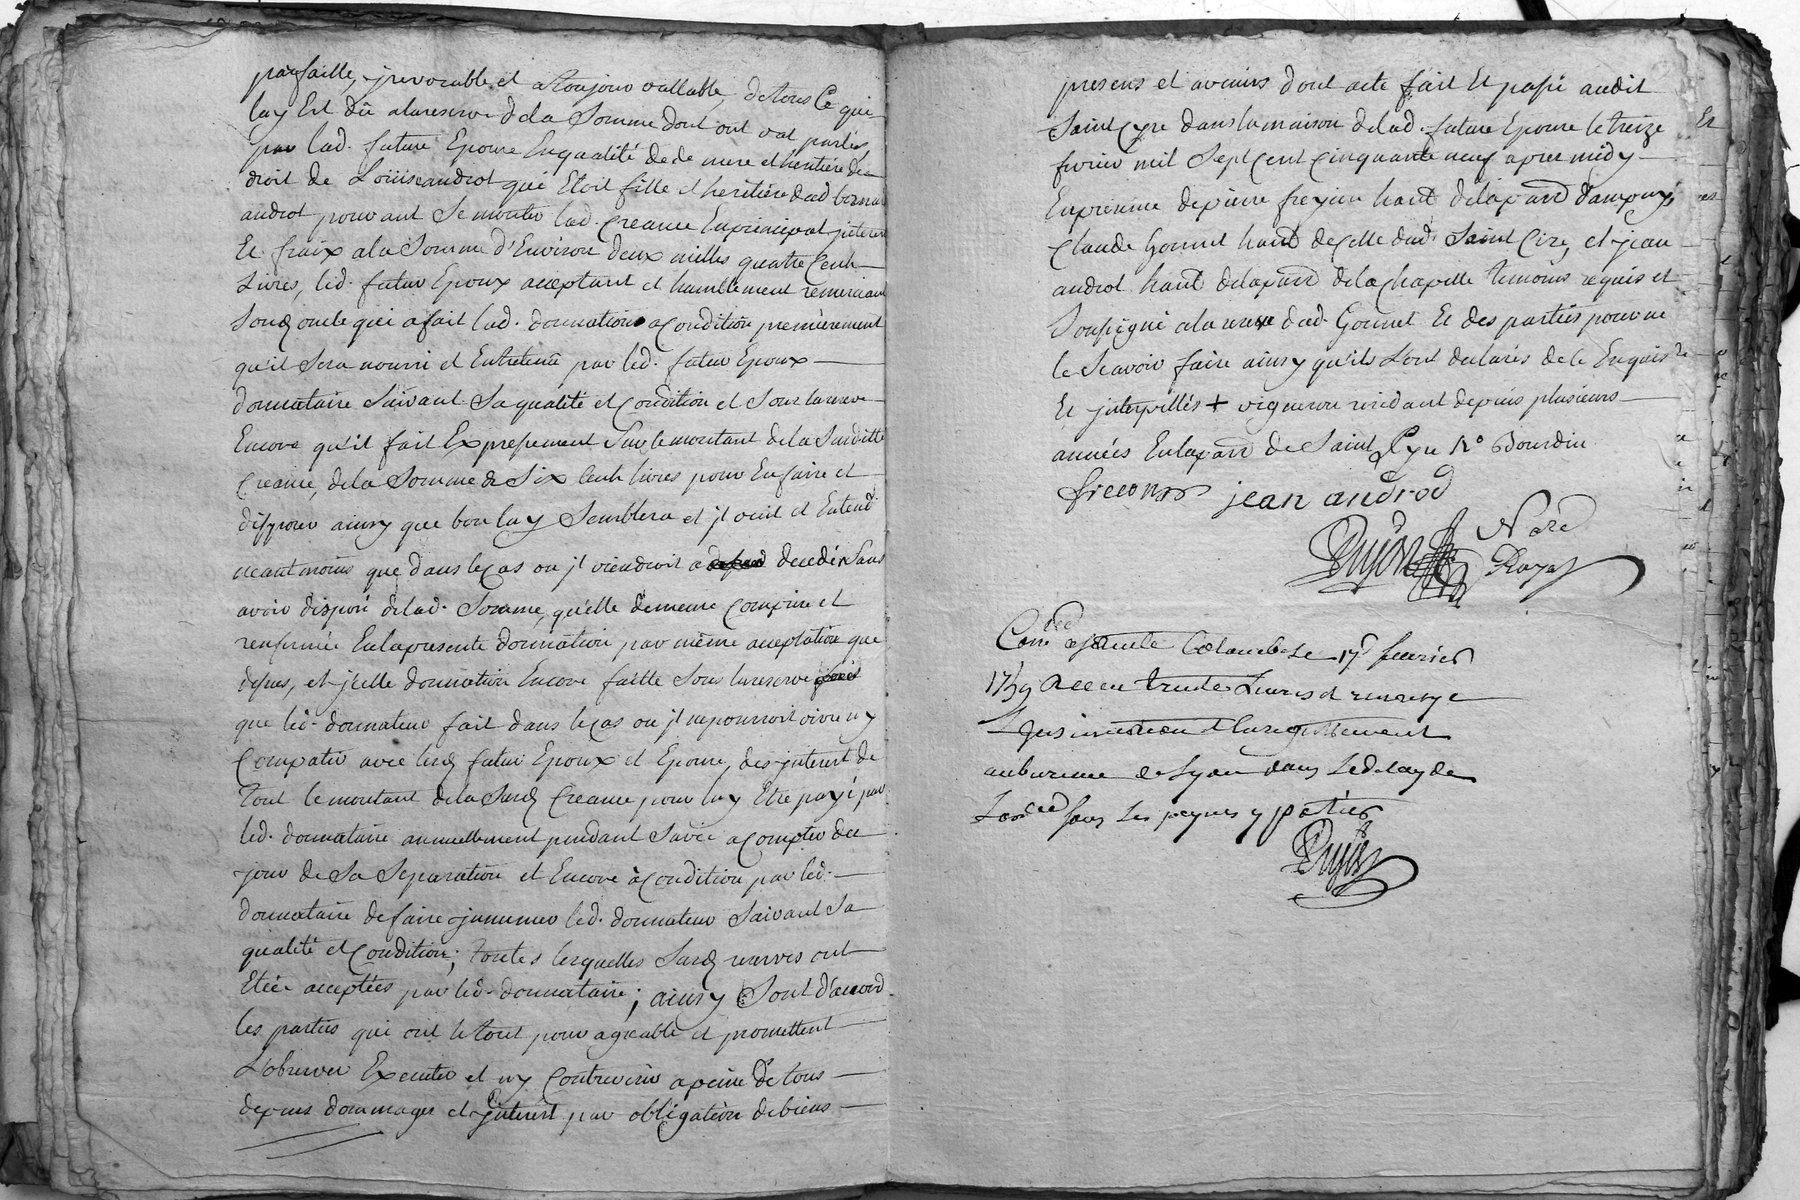 parfaitte, jrevocable et a toujour vallable, de tous Ce qui
luy Est dû alareserve dela Somme dont ont vat parler,
par lad. future Epouse En qualité de de mere et heritiere de
droit de Loüise androt qui Etoit fille et heritiere dud
androt pouvant Se monter lad. Creance En principal jnterest
Et fraix ala Somme d'Environ deux milles quattre Cent
Livres, led. futur Epoux acceptant et humblement remerciant
Sond. oncle qui a fait lad. donnation a Condition premierement
qu'il Sera nourri et Entretenu par led. futur Epoux
donnataire Suivant Sa qualité et Condition et Sous la reserve
Encore qu'il fait Expressement Sur le montant dela Susditte
Creance, dela Somme de Six Cent livres pour En faire et
disposer ainsy que bon luy Semblera et jl veut et Entend
neantmoins que dans le Cas ou jl viendroit a deceder Sans
avoir disposé delad. Somme, qu'elle demeure Comprise et
renfermée En la presente donnation par même acceptation que
dessus, et jcelle donnation Encore faitte Sous la reserve
que led. donnateur fait dans le Cas ou jl ne pourroit vivre ny
Compatir avec lesd. futur Epoux et Epouse, des jnterest de
Tout le montant dela Susd. Creance pour luy Etre payé par
led. donnataire annuellement pendant Sa vie a Compter du
jour de Sa Separation et Encore à Condition par led.
donnataire de faire jnhumer led. donnateur Suivant Sa
qualité et Condition; toutes lesquelles Susd. reserves ont
Eté acceptées par led. donnataire; ainsy Sont d'accord
les parties qui ont le tout pour agreable et promettent
L'observer Executer et ny Contrevenir a peine de tous
depens dommages et jnterest par obligation de biens
presens et avenirs dont acte fait Et passé audit
Saint Cyre dans la maison delad. future Epouse le treize
fevrier mil Sept Cent Cinquante neuf apres midy
En presence de pierre freyssu habt. delaparr. d'ampuy,
Claude Gonnet habt. de Celle dud. Saint Cire, et jean
androt habt. delaparr. dela Chapelle temoins requis et
Soussigné ala reserve dud. Gonnet Et des parties pour ne
le Scavoir faire ainsy qu'ils l'ont declarés de le Enquis
Et jnterpellés + vigneron residant depuis plusieurs
années En laparr. de Saint Cyre No Bourdin
jean androd
Nore
Royal
Condrieu le 17 fevrier
1759 Receu trente Livres et renvoyé
L'insinuation et Enregistrement
au bureau de Lyon dans Le delay de
sous Les peynes y portées